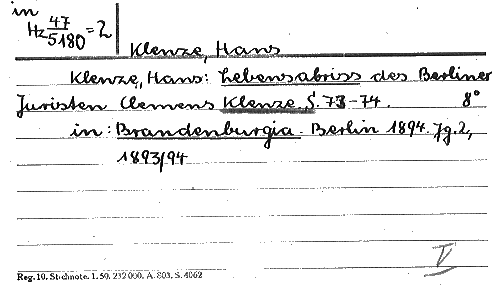 in
Hz 47/5180 = 2
Klenze, Hans
Klenze, Hans: Lebensabriss des Berliner
Juristen Clemens Klenze. S. 73-74. 8°
in: Brandenburgia. Berlin 1894. Jg. 2,
1893/94
V
Reg. 10. Stichnote. 1. 50. 232 000. A. 803. S. 4062